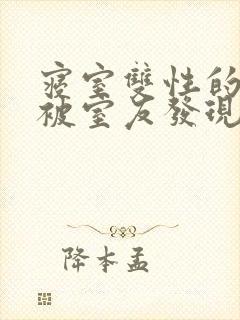 寢室雙性的
被室友發現
降本孟